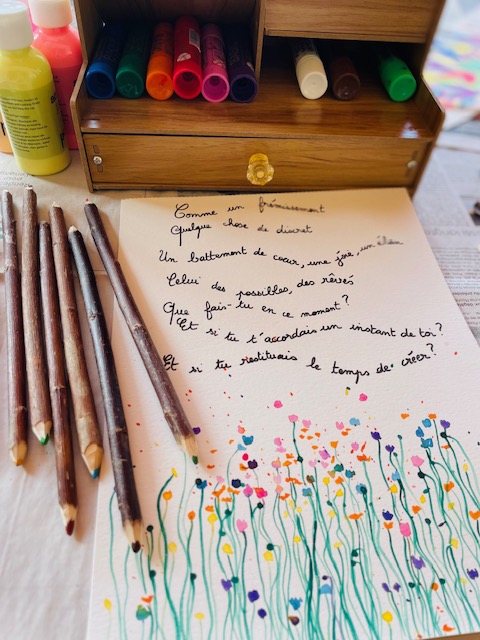 Comme un frémissement
Quelque chose de discret
Un battement de cœur, une joie, un élan
Celui des possibles, des rêves
Que fais-tu en ce moment?
Et si tu t'accordais un instant de toi?
Et si tu restituais le temps de créer?